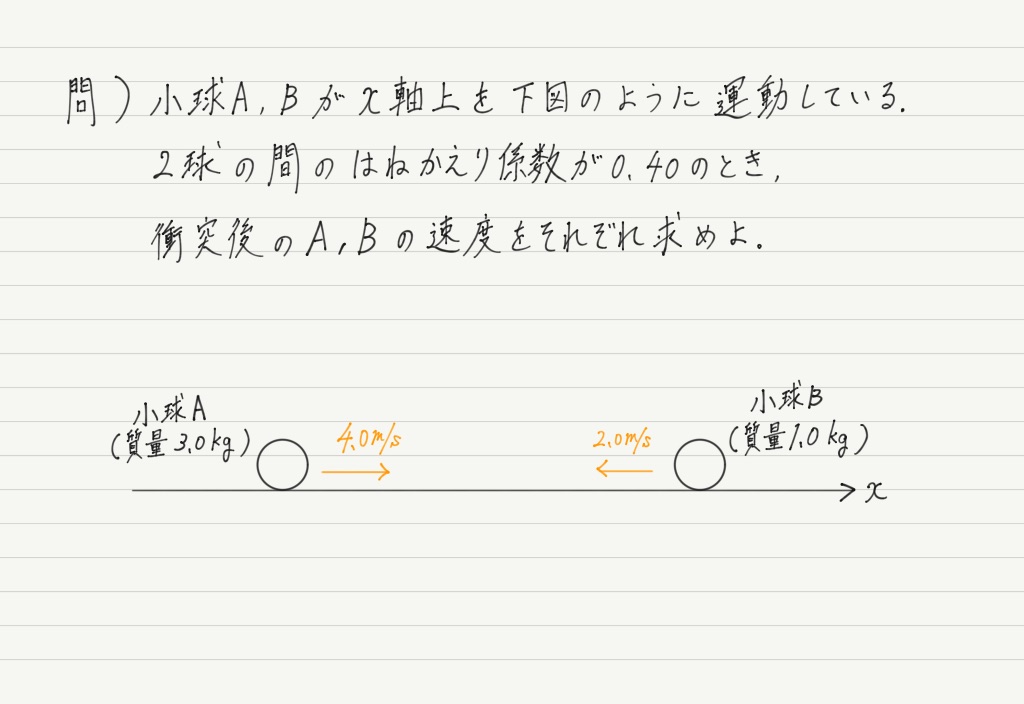 問）小球A,Bがx軸上を下図のように運動している.
2球の間のはねかえり係数が0.40のとき,
衝突後のA,Bの速度をそれぞれ求めよ.
小球A
(質量3.0kg)
4.0m/s
2.0m/s
小球B
(質量1.0kg)
x